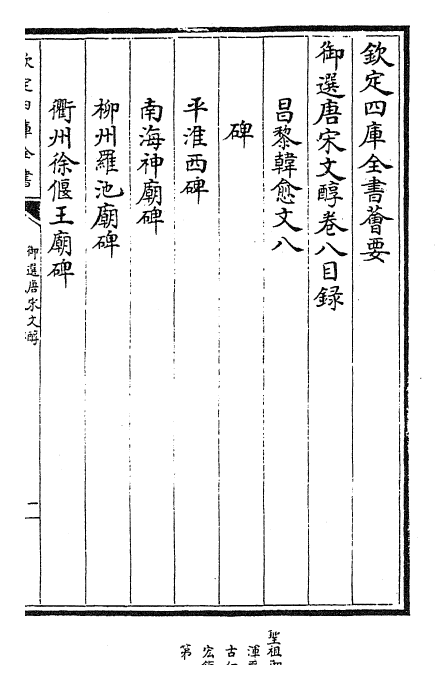 欽定四庫全書薈要
御選唐宋文醇卷八目録
昌黎韓愈文八
碑
平淮西碑
南海神廟碑
柳州羅池廟碑
衢州徐偃王廟碑
欽定四庫全書
御選唐宋文醇
一
聖祖
古
宏
第